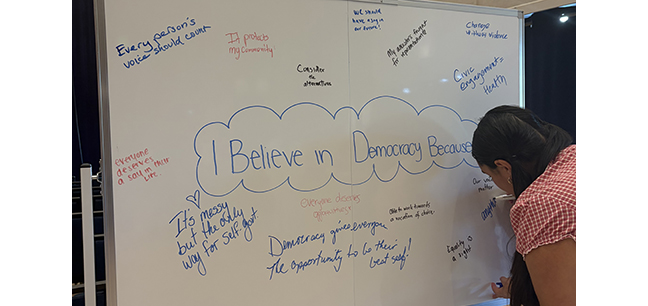 Every person's
voice should count
It protects
my community
We should
have a say in
our future!
My ancestors fought
for
Change
without violence
Consider
the
alternatives
Civic
engagement =
Health
I Believe in Democracy Because
everyone
deserves
a say in their
life.
It's messy
but the only
way for self govt
everyone deserves
a
Able to work towards
a vocation of choice.
Democracy gives everyone
The opportunity to be their
best self!
Our
matter
Equality is
a right